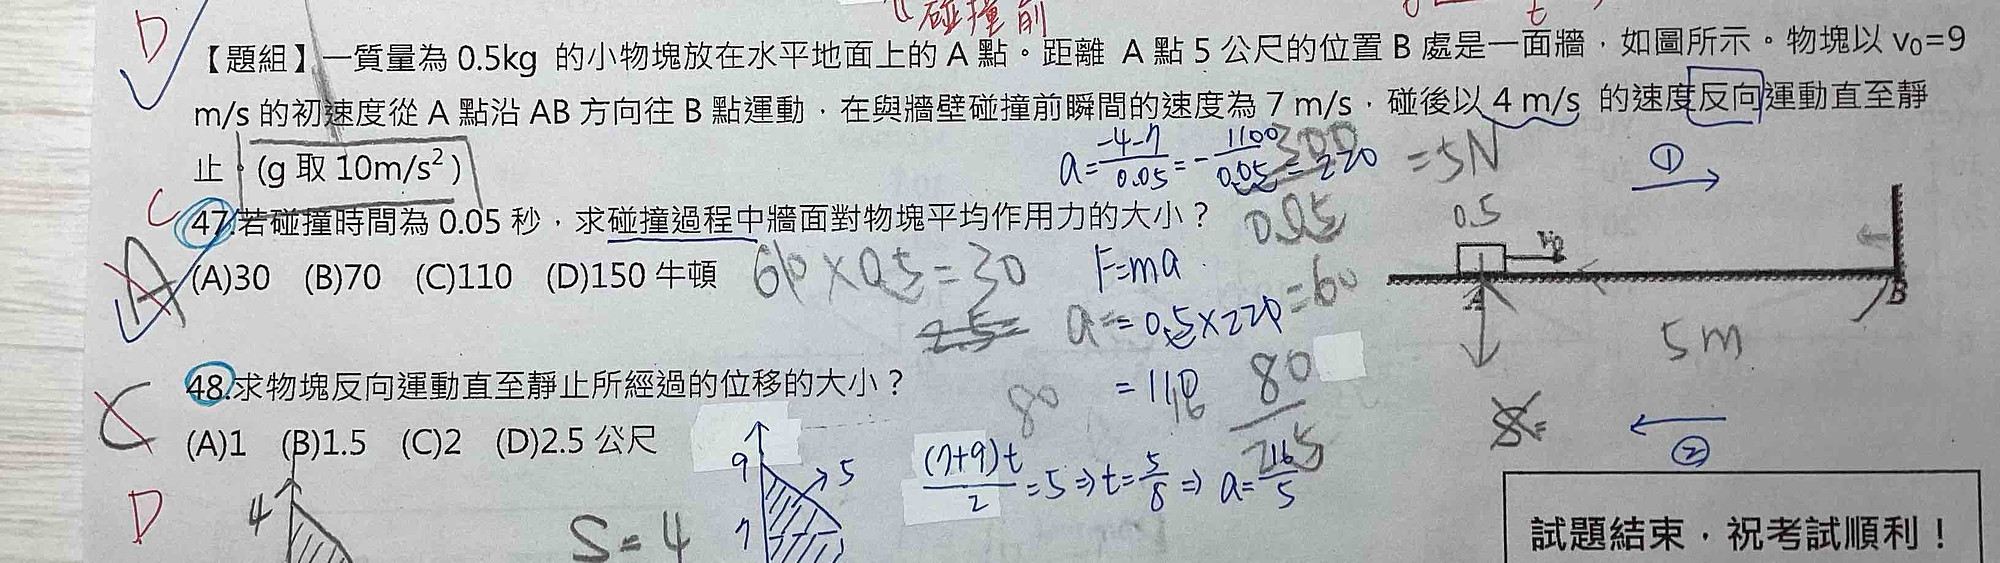 碰撞前
t
D
【題組】一質量為 0.5kg 的小物塊放在水平地面上的 A 點。距離 A 點 5 公尺的位置 B 處是一面牆，如圖所示。物塊以 v₀=9
m/s 的初速度從 A 點沿 AB 方向往 B 點運動，在與牆壁碰撞前瞬間的速度為 7 m/s，碰後以 4 m/s 的速度反向運動直至靜
止。(g 取 10m/s²)
a=(-4-7)/0.05=-1100/0.05=220
300
=5N
①
C
47.若碰撞時間為 0.05 秒，求碰撞過程中牆面對物塊平均作用力的大小？
0.5
A
(A)30 (B)70 (C)110 (D)150 牛頓
60×0.5=30
F=ma
=60
a==0.5×220
2.5=
=110
A
B
5m
C
48.求物塊反向運動直至靜止所經過的位移的大小？
80
16
80
(A)1 (B)1.5 (C)2 (D)2.5 公尺
S=
②
9
5
7
(7+9)t/2=5⇒t=5/8⇒a=16/5
D
4
S=4
試題結束，祝考試順利！